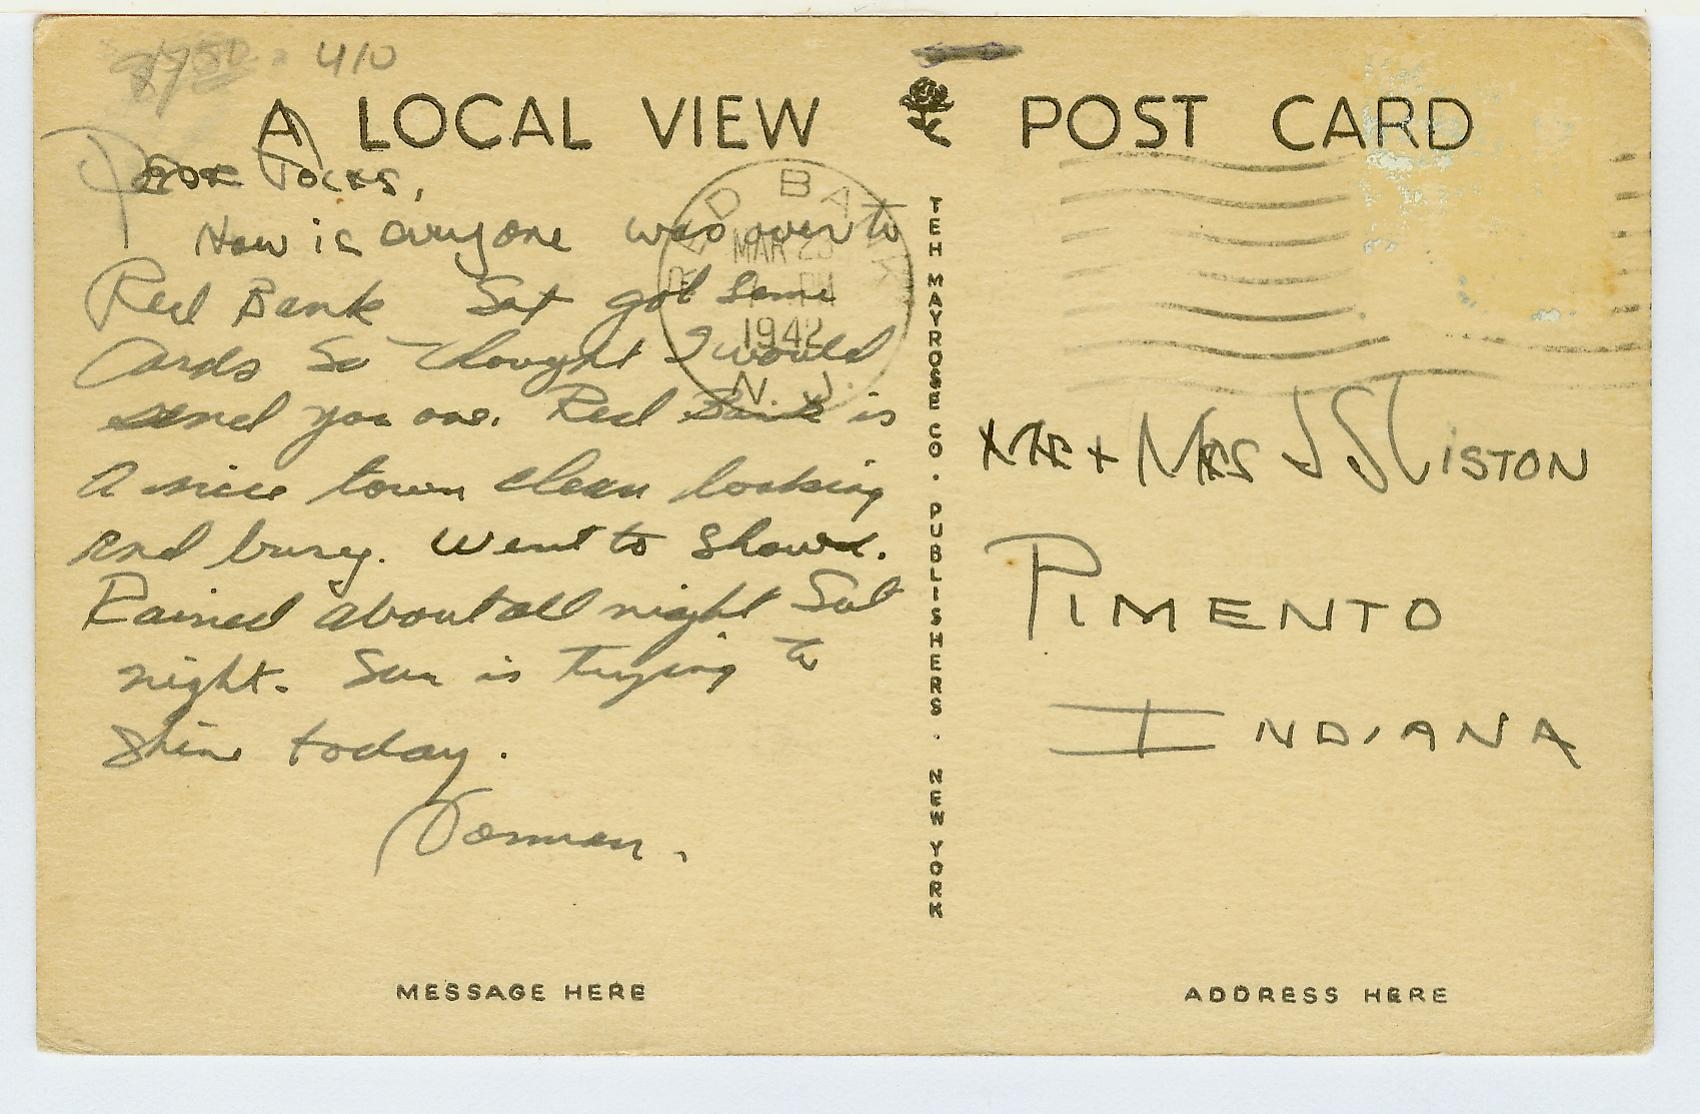 410
A LOCAL VIEW
POST CARD
Dear Folks,
How is everyone was over to
Red Bank Sat got some
Cards So thought I would
send you one. Red Bank is
A nice town clean looking
and busy. Went to Show.
Rained about all night Sat
night. Sun is trying to
shine today.
Norman.
MESSAGE HERE
RED BANK
MAR 23
PM
1942
N. J.
TEH MAYROSE CO. PUBLISHERS. NEW YORK
MR + MRS J S LISTON
PIMENTO
INDIANA
ADDRESS HERE